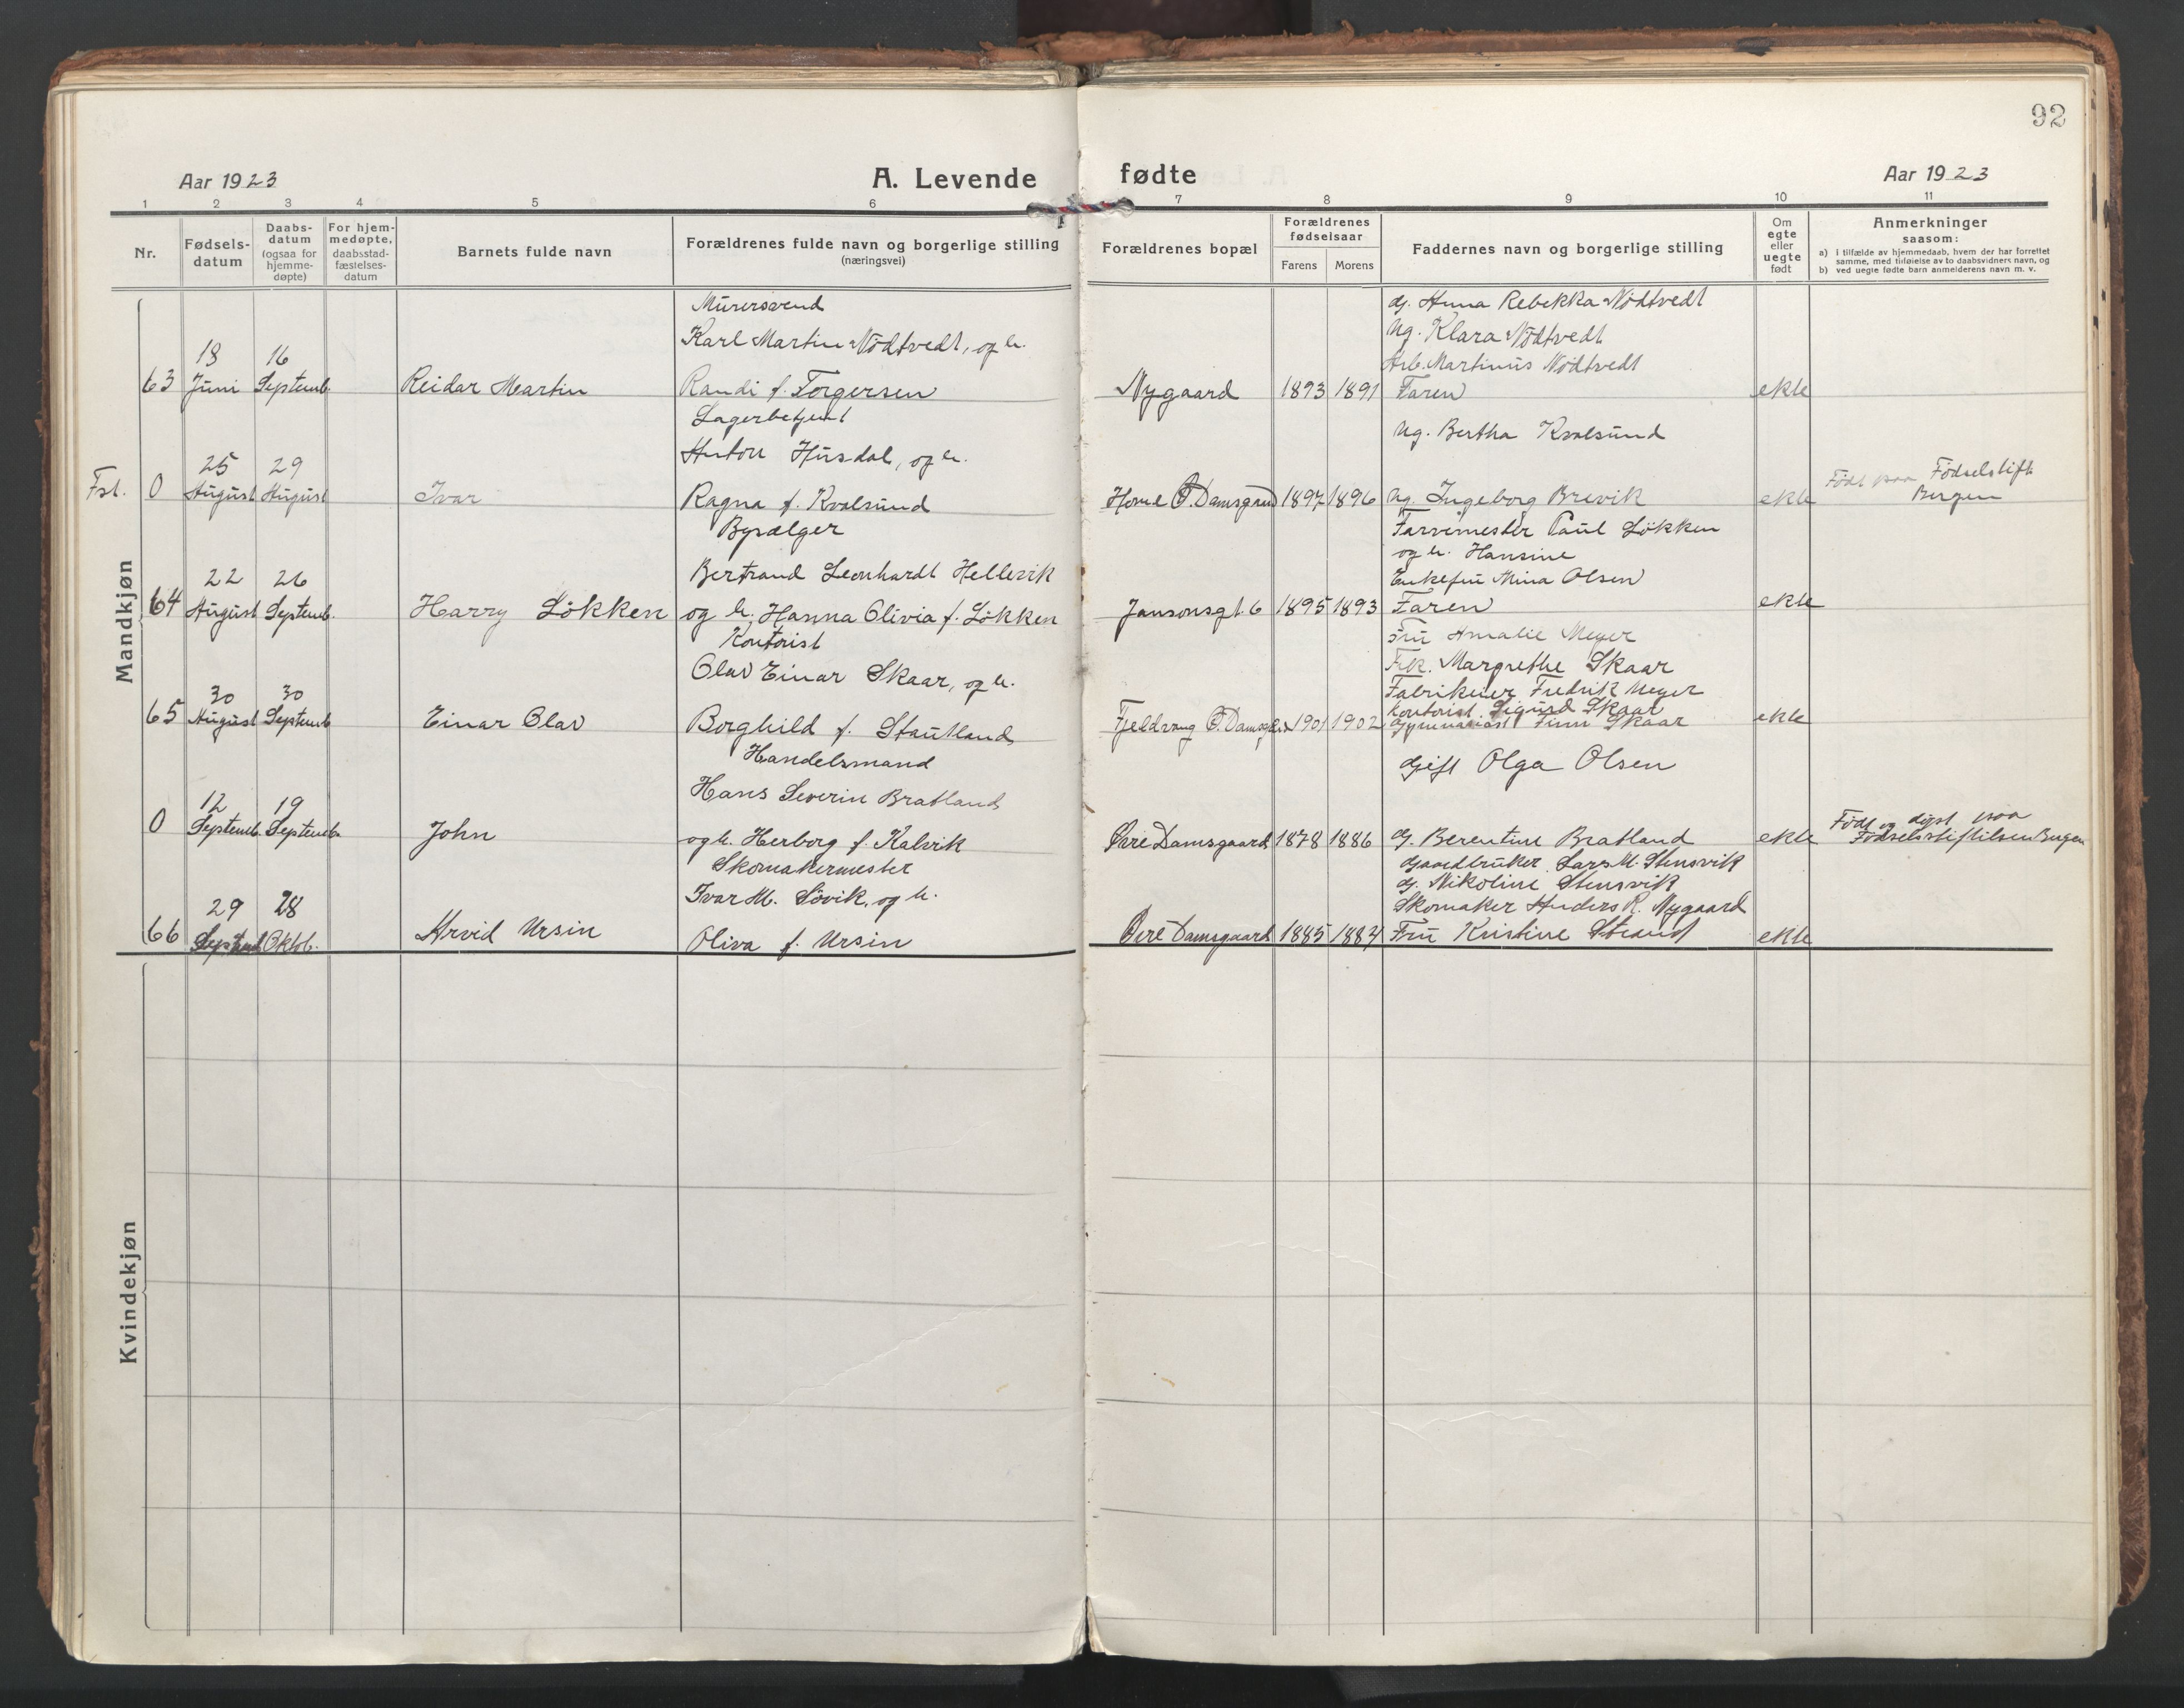 92
Aar 1923
A. Levende fødte
Aar 1923
1 2 3 4 5 6 7 8 9 10 11
Nr.
Fødsels-
datum
Daabs-
datum
(ogsaa for
hjemme-
døpte)
For hjem-
medøpte,
daabsstad-
fæstelses-
datum
Barnets fulde navn
Forældrenes fulde navn og borgerlige stilling
(næringsvei)
Forældrenes bopæl
Forældrenes
fødselsaar
Farens Morens
Faddernes navn og borgerlige stilling
Om
egte
eller
uegte
født
Anmerkninger
saasom:
a) i tilfælde av hjemmedaab, hvem der har forrettet
samme, med tilføielse av to daabsvidners navn, og
b) ved uegte fødte barn anmelderens navn m. v.
Mandkjøn
63
18
Juni
16
Septemb.
Reidar Martin
Murersvend
Karl Martin Nödtvedt, og h.
Randi f. Torgersen
Nygaard
1893 1891
g. Anna Rebekka Nödtvedt
Ug. Klara Nödtvedt
Arb. Martinus Nödtvedt
Faren
ekte
Fst. 0
25
August
29
August
Ivar
Lagerbetjent
Anton Husdal, og h.
Ragna f. Kvalsund
Home Ö. Damsgaard
1897 1896
Ug. Bertha Kvalsund
Ug. Ingeborg Brevik
ekte
Födt paa Födselstift.
Bergen
64
22
August
26
Septemb.
Harry Lökken
Bysælger
Bertrand Leonhardt Hellesik
og h. Hanna Olivia f. Lökken
Jansonsgt. 6
1895 1893
Farvemester Paul Lökken
og h. Hansine
Enkefru Mina Olsen
Faren
ekte
65
30
August
30
Septemb
Einar Olav
Kontorist
Olav Einar Skaar, og h.
Borghild f. Stautland
Fjeldvang Ö. Damsgard
1901 1902
Fru Amalie Meyer
Frk. Margrethe Skaar
Fabrikeier Fredrik Meyer
Kontorist Sigurd Skaar
Gymnasiast Finn Skaar
ekte
0
12
Septemb.
19
Septemb.
John
Handelsmand
Hans Severin Bratland
og h. Herborg f. Kalvik
Övre Damsgaard
1878 1886
Gift Olga Olsen
g. Berentine Bratland
ekte
Födt og döpt paa
Födselsstiftelsen Bergen
66
29
Septemb
28
Oktob.
Arvid Ursin
Skomakermester
Ivar M. Sövik, og h.
Oliva f. Ursin
Övre Damsgaard
1885 1884
Gaardbruker Lars M. Stensvik
g. Nikoline Stensvik
Skomaker Anders R. Nygaard
Fru Kristine Strand
ekte
Kvindekjøn